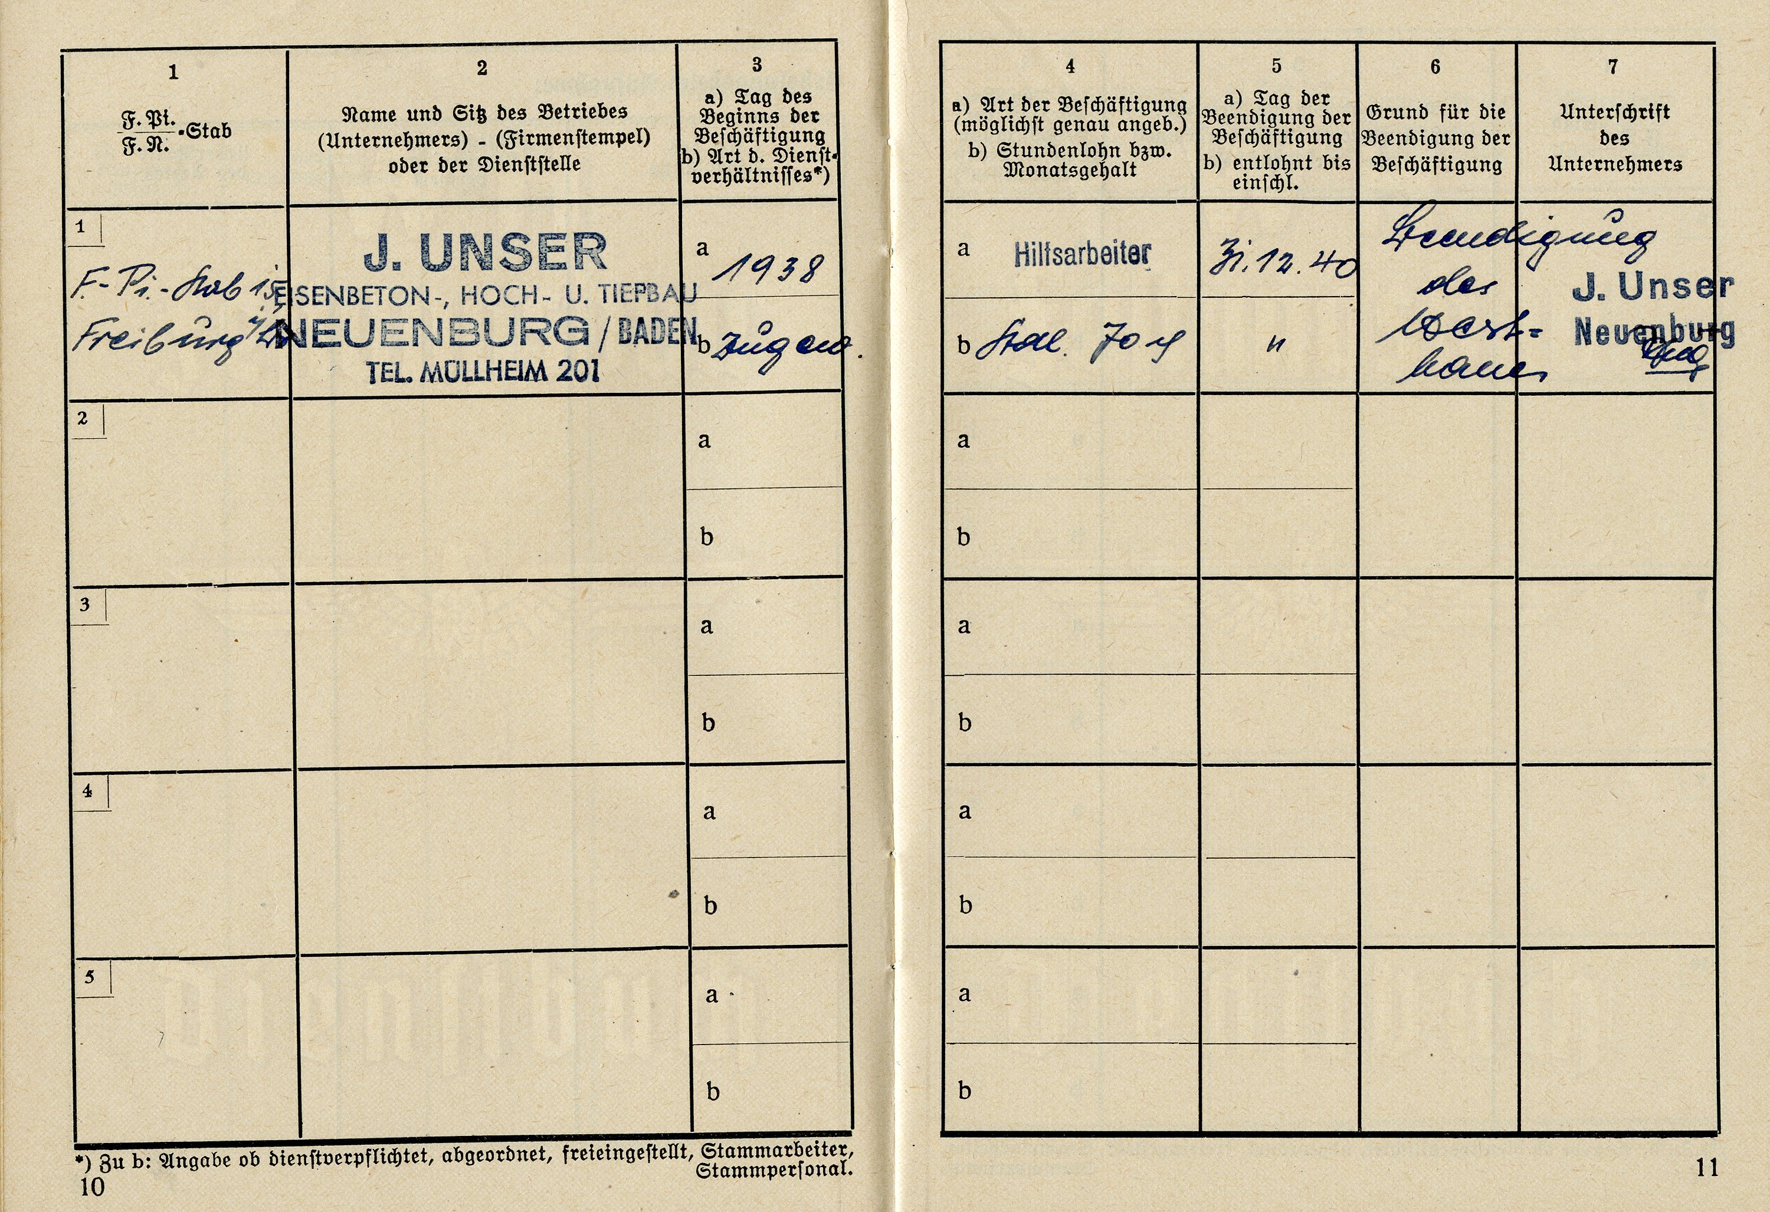 1
F. Pi.
F. N. -Stab
2
Name und Sitz des Betriebes
(Unternehmers) - (Firmenstempel)
oder der Dienststelle
3
a) Tag des
Beginns der
Beschäftigung
b) Art d. Dienst-
verhältnisses*)
1
F.-Pi.-Stab
Freiburg
J. UNSER
EISENBETON-, HOCH- U. TIEFBAU
NEUENBURG / BADEN
TEL. MÜLLHEIM 201
a 1938
b
2
a
b
3
a
b
4
a
b
5
a
b
*) Zu b: Angabe ob dienstverpflichtet, abgeordnet, freieingestellt, Stammarbeiter,
Stammpersonal.
10
4
a) Art der Beschäftigung
(möglichst genau angeb.)
b) Stundenlohn bzw.
Monatsgehalt
5
a) Tag der
Beendigung der
Beschäftigung
b) entlohnt bis
einschl.
6
Grund für die
Beendigung der
Beschäftigung
7
Unterschrift
des
Unternehmers
a Hilfsarbeiter
31.12.40
b Stdl. 70
"
Beendigung
des
West-
baues
J. Unser
Neuenburg
a
b
a
b
a
b
a
b
11